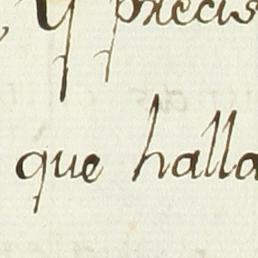 , y precis
que halla